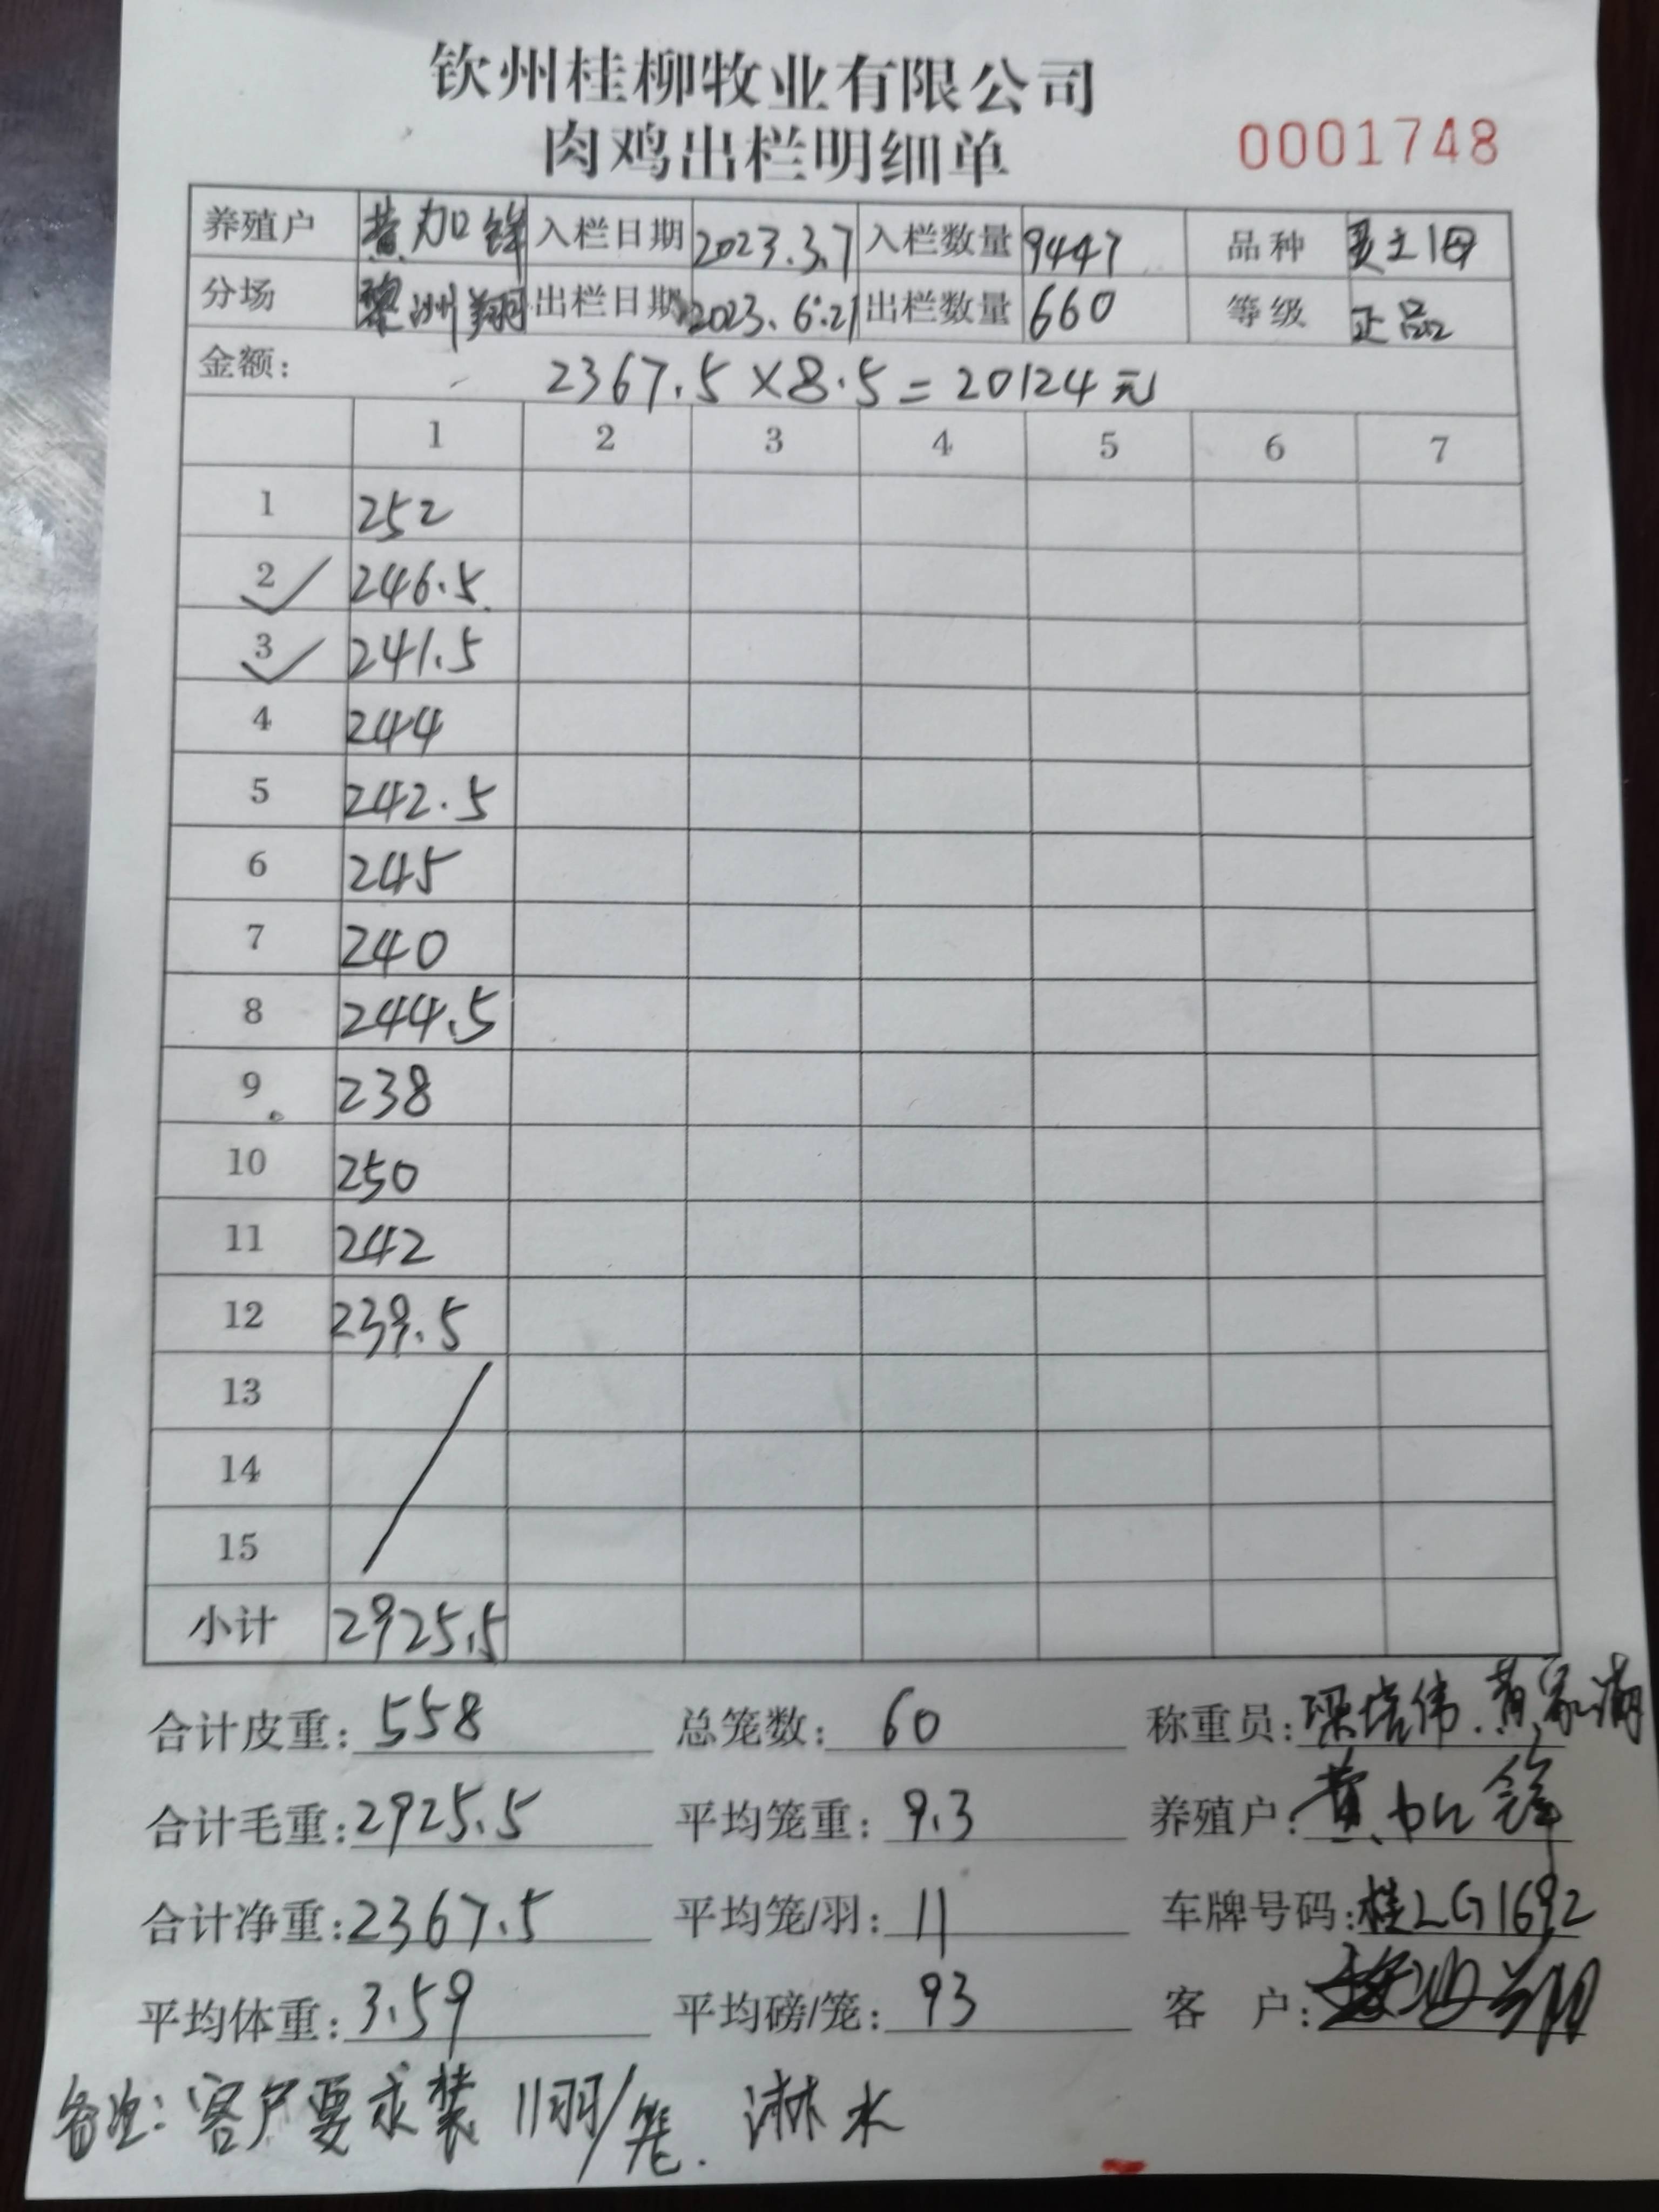 钦州桂柳牧业有限公司
肉鸡出栏明细单
0001748
养殖户 黄加锋 入栏日期 2023.3.7 入栏数量 9447 品种 灵土1母
分场 黎洲翔 出栏日期 2023.6.21 出栏数量 660 等级 正品
金额: 2367.5×8.5=20124元
1 2 3 4 5 6 7
1 252
2 246.5
3 241.5
4 244
5 242.5
6 245
7 240
8 244.5
9 238
10 250
11 242
12 239.5
13
14
15
小计 2925.5
合计皮重: 558 总笼数: 60 称重员:
合计毛重: 2925.5 平均笼重: 9.3 养殖户: 黄加锋
合计净重: 2367.5 平均笼/羽: 11 车牌号码: 桂LG1692
平均体重: 3.59 平均磅/笼: 93 客户:
备注: 客户要求装11羽/笼. 淋水